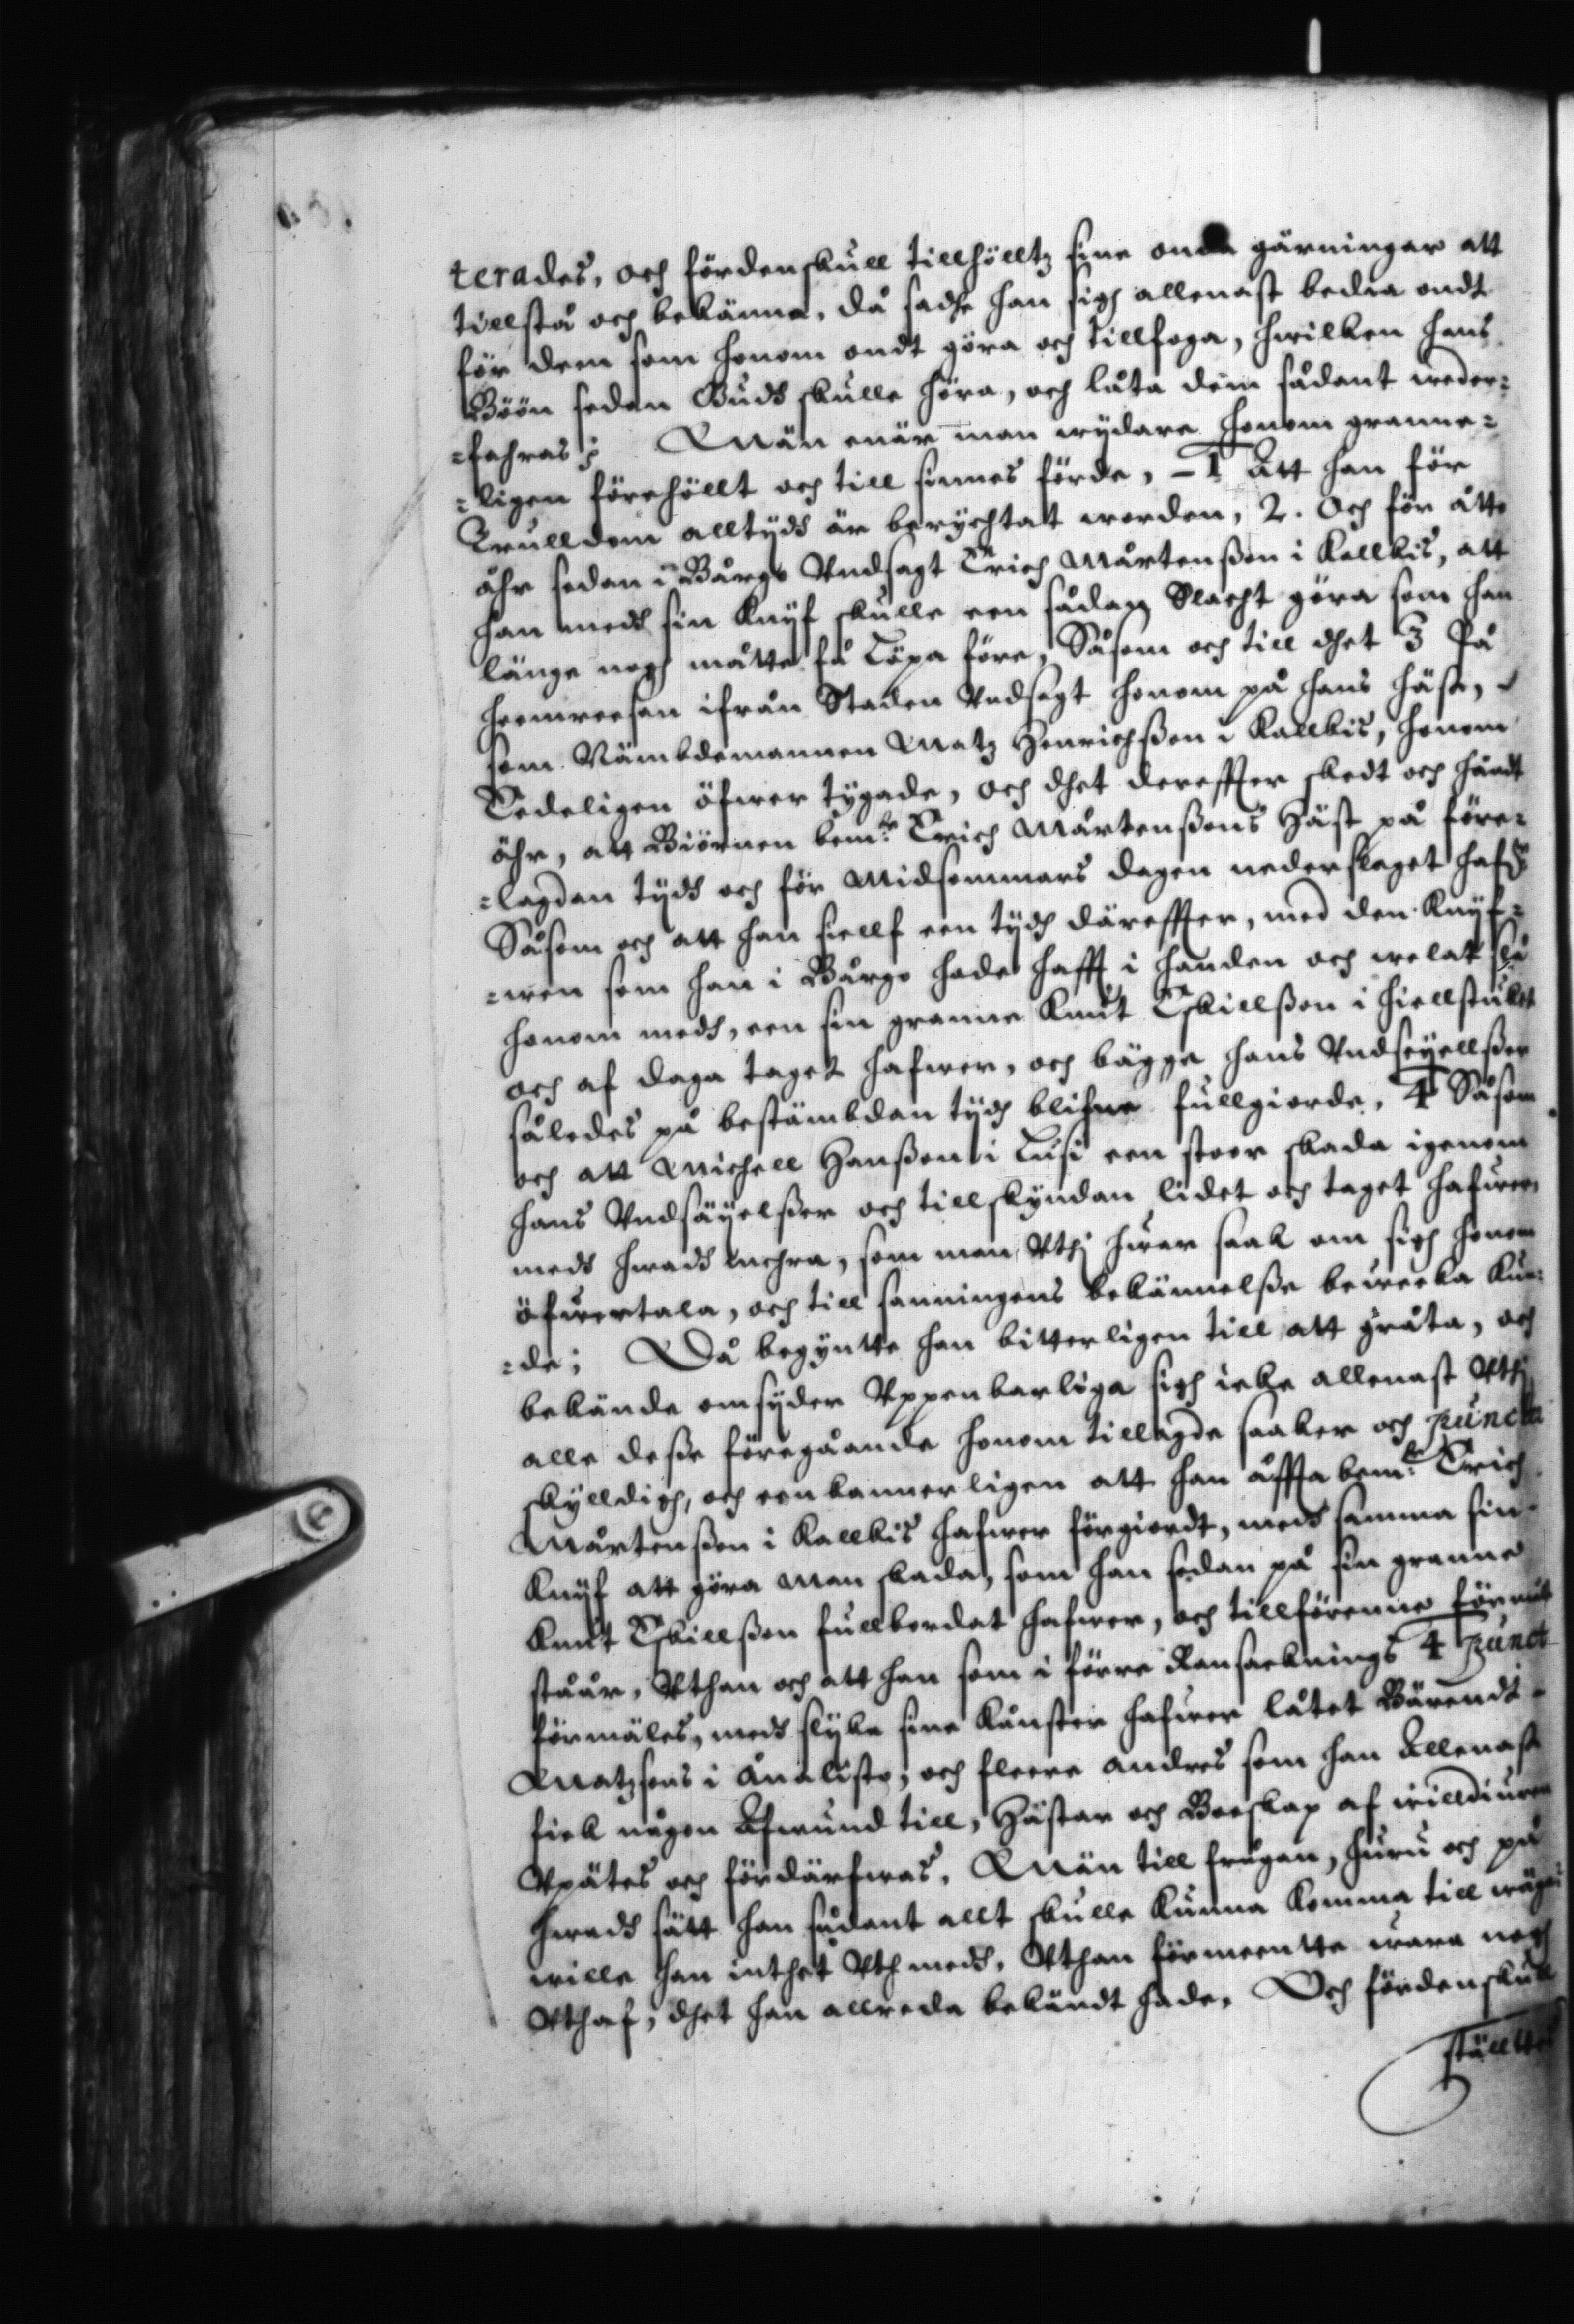 terades, och fördenskull tillhölltz sine onda gärningar att
tillstå och bekänna, då sadhe han sigh allenast bedia ondt
för dem som honom ondt göra och tillfoga, hwilken hans
Böön sedan Gudh skulle höra, och låta dem sådant weder=
=fahras; Män enär man wydare honom granne=
=ligen förehöllt och till sinnes förde, - 1 Att han för
Trulldom alltydh är berychtat worden, 2. Och för otto
åhr sedan i Bårgo Vndsagt Erich Mårtenßon i Kallbis, att
han medh sin Knyf skulle een sådan Slacht göra som han
länge nogh måtte få Löpa före, Såsom och till dhet 3 På
heemreesan ifrån Staden Vndsagt honom på hans häst,
som Nämbdemannen Matz Henrichßon i Kallbis, honom
Eedeligen öfwer tygade, och dhet dereffter skedt och händt
ähr, att Biörnen bem:te Erich Mårtenßons Häst på före=
=lagdan tydh och för Midsommars dagen nederslaget hafr
Såsom och att han siellf een tydh däreffter, med den Knyf=
=wen som han i Bårgo hade hafft i handen och welat slå
honom medh, een sin granne Knut Eskillßon i hiellstukt
och af daga taget hafwer, och bägge hans Vndseyellßer
således på bestämbdan tydh blifne fullgiorde, 4 Såsom
och att Michell Hanßon i Lusi een stoor skada igenom
hans Vndsäyelßer och tillskyndan lidet och taget hafwer,
medh hwadh mehra, som man Vthi hwar saak om sigh honom
öfwertala, och till sanningens bekännelße beweeka kun=
=de; Då begyntte han bitterligen till att gråta, och
bekände omsyder Vppenbarliga sigh icke allenast Vthi
alle deße föregåande honom tillagde saaker och puncta
skylldigh, och eenkannerligen att han åffta bem:te Erich
Mårtenßon i Kallbis hafwer förgiordt, medh samma sin
Knyf att göra man skada, som han sedan på sin granne
Knut Eskillßon fullbordat hafwer, och tillförenne förmält
ståår, Vthan och att han som i förre Ransaknings 4 punct
förmäles, medh slyke sine Kånster hafwer låtet Bärendt
Matzsons i Analisto, och fleere andres som han Allenast
fick någon Afwund till, Hästar och Booskap af willdiuren
Vpätes och fördärfwas. Män till frågan, huru och på
hwadh sätt han sådant allt skulle Kunna Komma till wäga
wille han inthet Vth medh, Vthan förmeentte wara nogh
Vthaf, dhet han allreda bekändt hade. Och fördenskull
ställtes